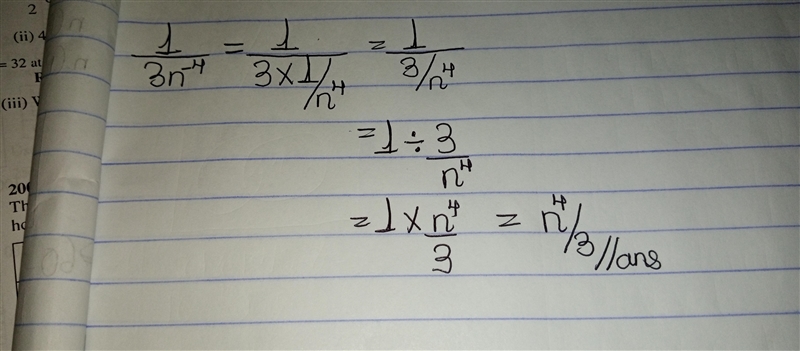 2
(ii) 4
= 32 at
(iii) V
200
Th
ho
1/3n⁻⁴ = 1/3×1/n⁴ = 1/3/n⁴
= 1 ÷ 3/n⁴
= 1 × n⁴/3 = n⁴/3 //ans